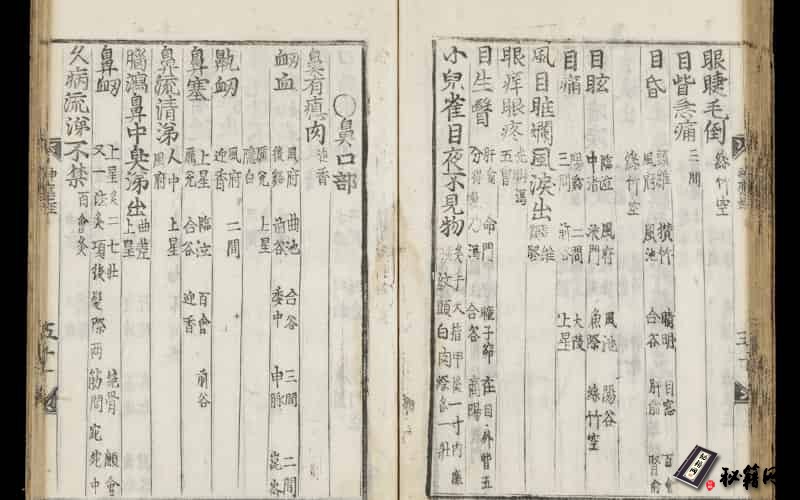 眼睫毛倒 絲竹空
目眥急痛 三間
目昏 頭維 攢竹 睛明 目窓 百會
風府 風池 合谷 肝兪 腎兪
絲竹空
目眩 臨泣 風府 風池 陽谷
中渚 液門 魚際 絲竹空
目痛 陽谿 二間 大陵
三間 前谷 上星
風目眶爛風淚出 頭維
眼痒眼疼 光明 五會
目生瞖 肝兪 命門 瞳子窌 在目外眥五
分 合谷 商陽
小兒雀目夜不見物 灸手大指甲後一寸內廉
橫紋頭白肉際各一壯
○鼻口部
鼻有瘜肉 迎香
衂血 風府 曲池 合谷 三間 二間
後谿 前谷 委中 申脉 崑崙
上星
隱白
鼽衂 風府 二間
迎香
鼻塞 上星 臨泣 百會 前谷
合谷 迎香
鼻流清涕 人中 上星
風府
腦瀉鼻中臭涕出 曲差
上星
鼻衂 上星灸二七壯 絶骨 顖會
又一法灸項後髮際兩筋間宛宛中
久病流涕不禁 百會灸
秘籍网